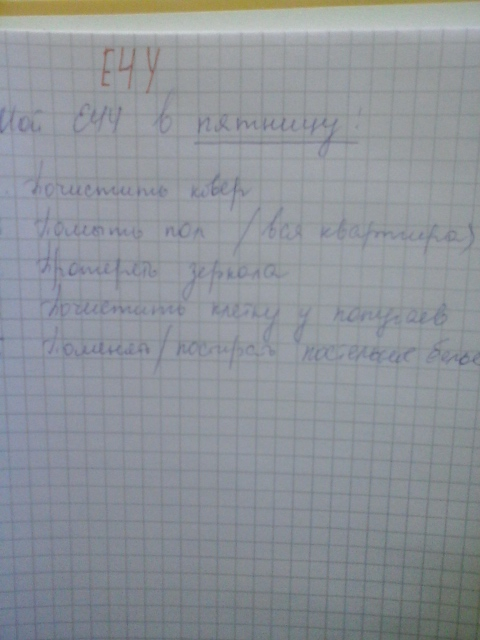 ЕЧУ
Мой ЕЧУ в пятницу:
Почистить ковер
Помыть пол (вся квартира)
Протереть зеркала
Почистить клетку у попугаев
Поменять/постирать постельное белье